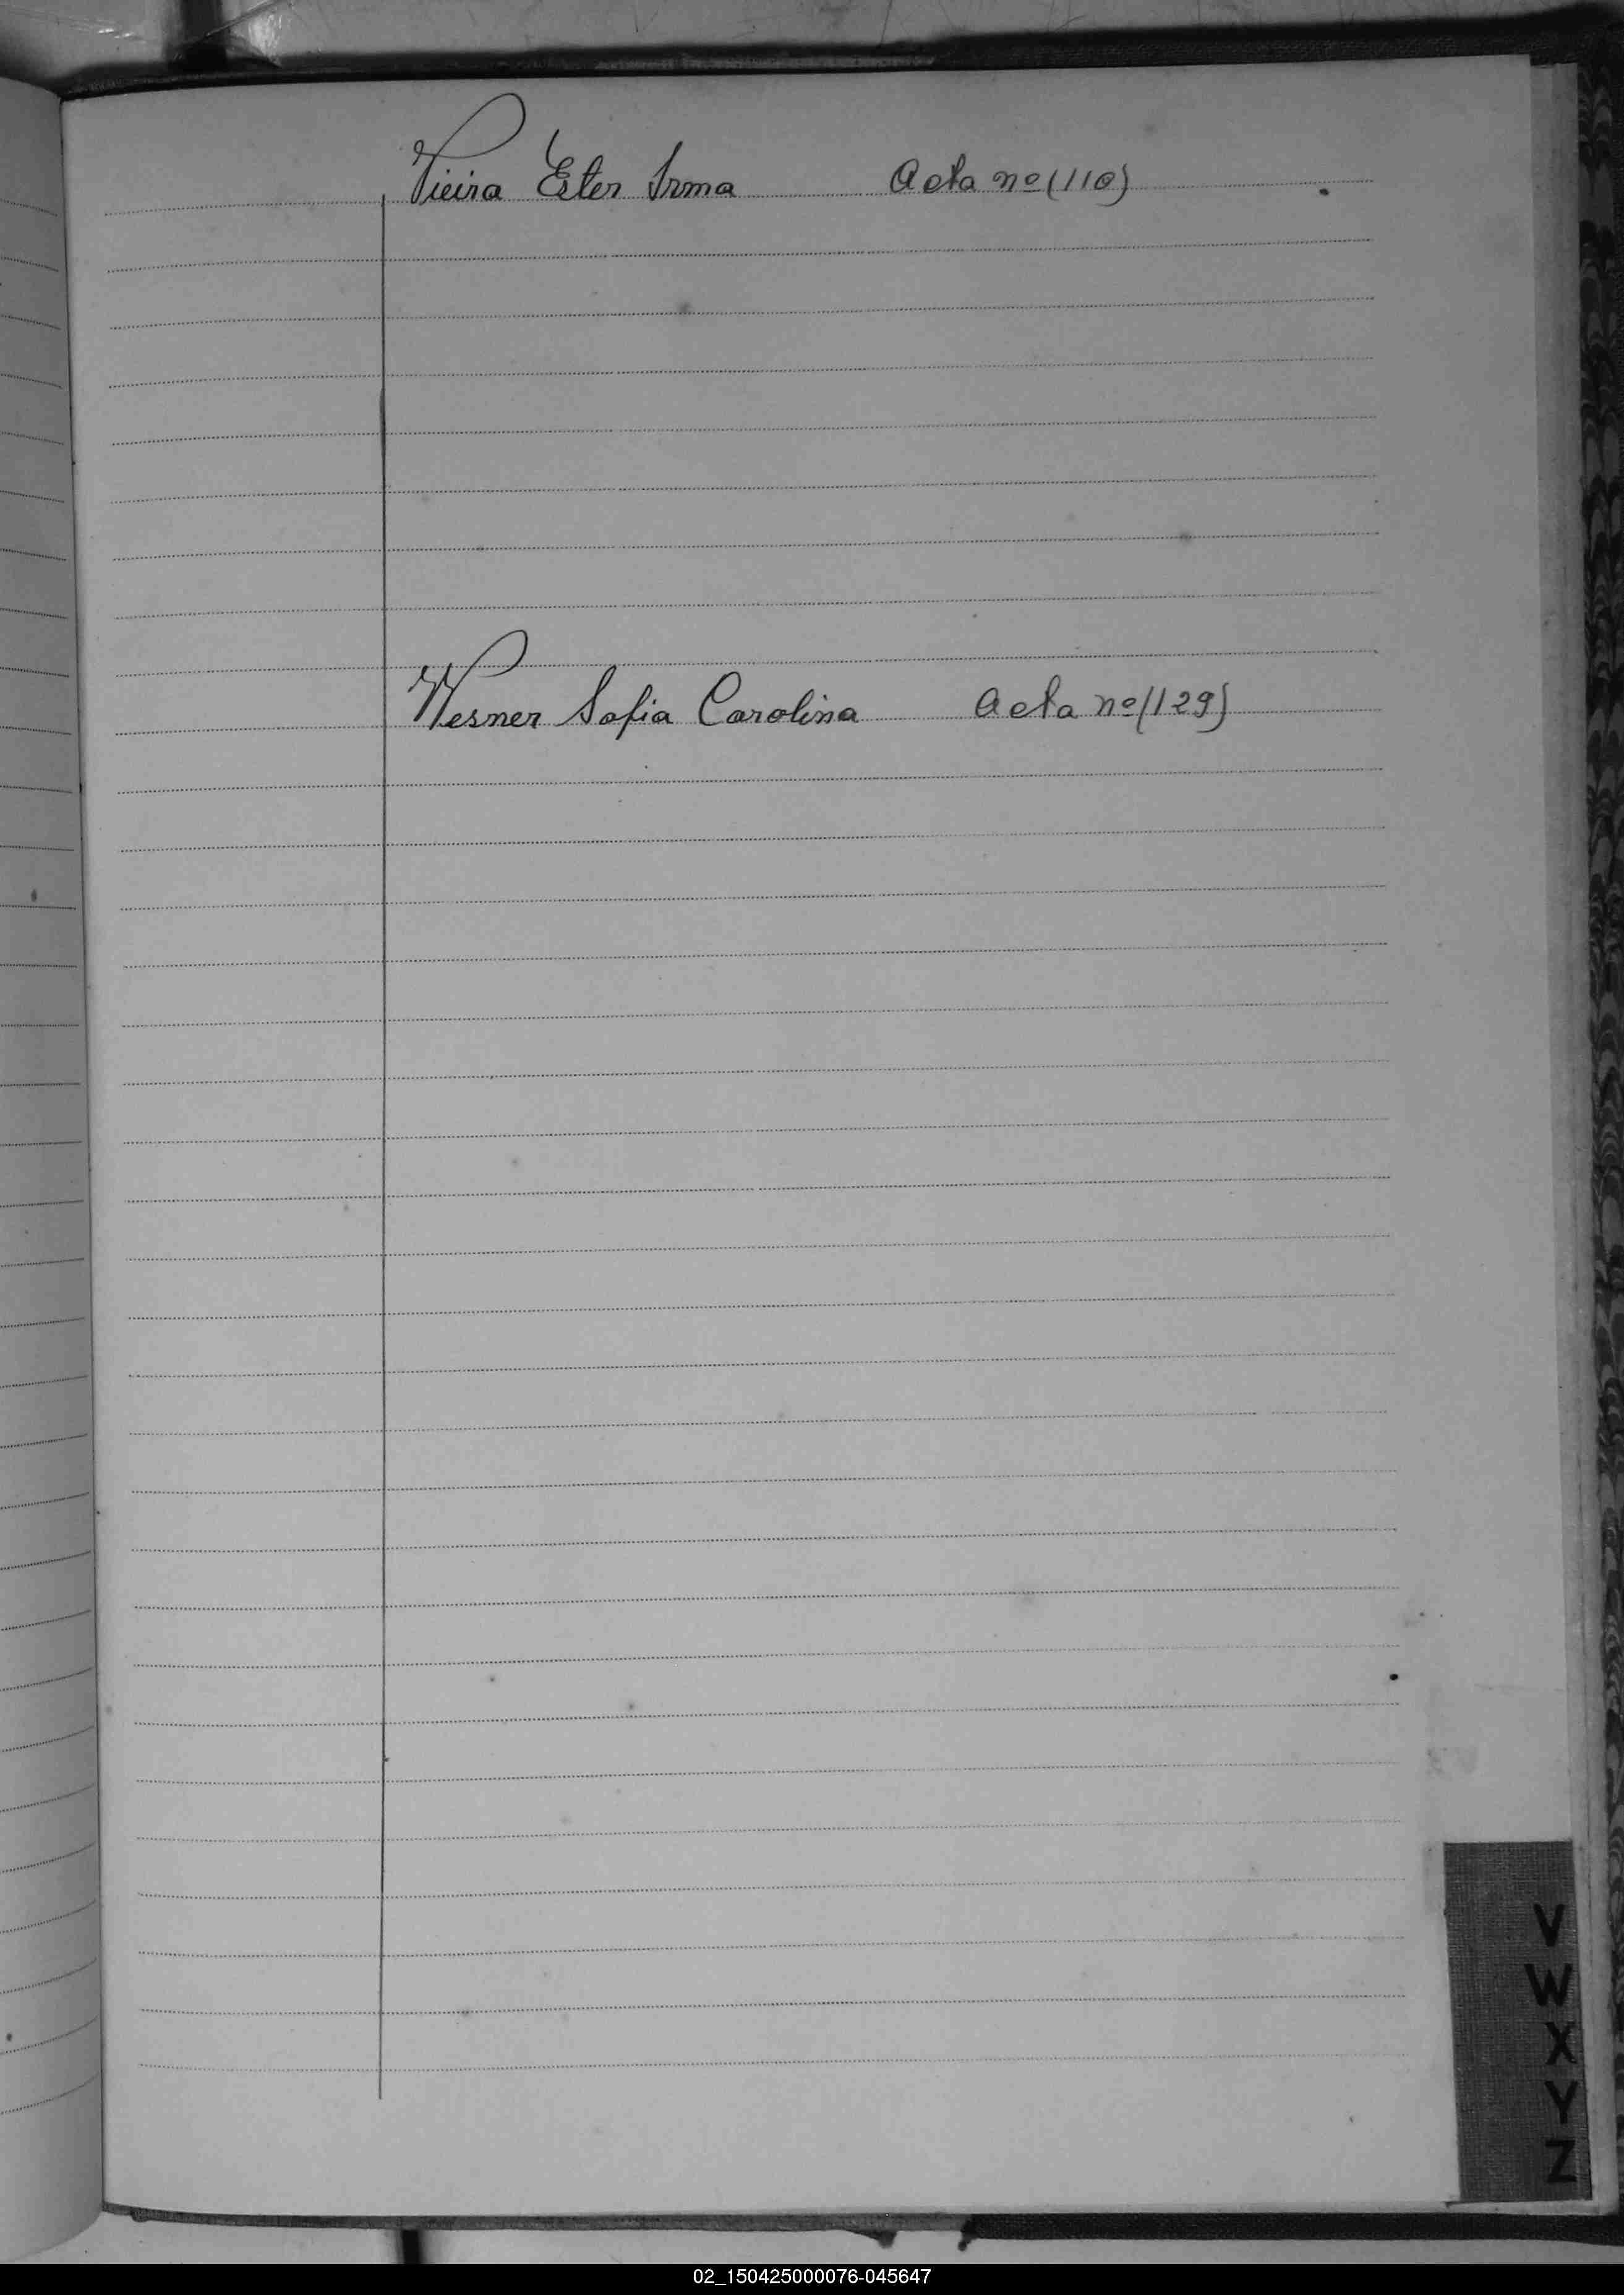 Vieira Ester Irma Acta nº (110)
Wesner Sofia Carolina Acta nº (129)
V
W
X
Y
Z
02_150425000076-045647